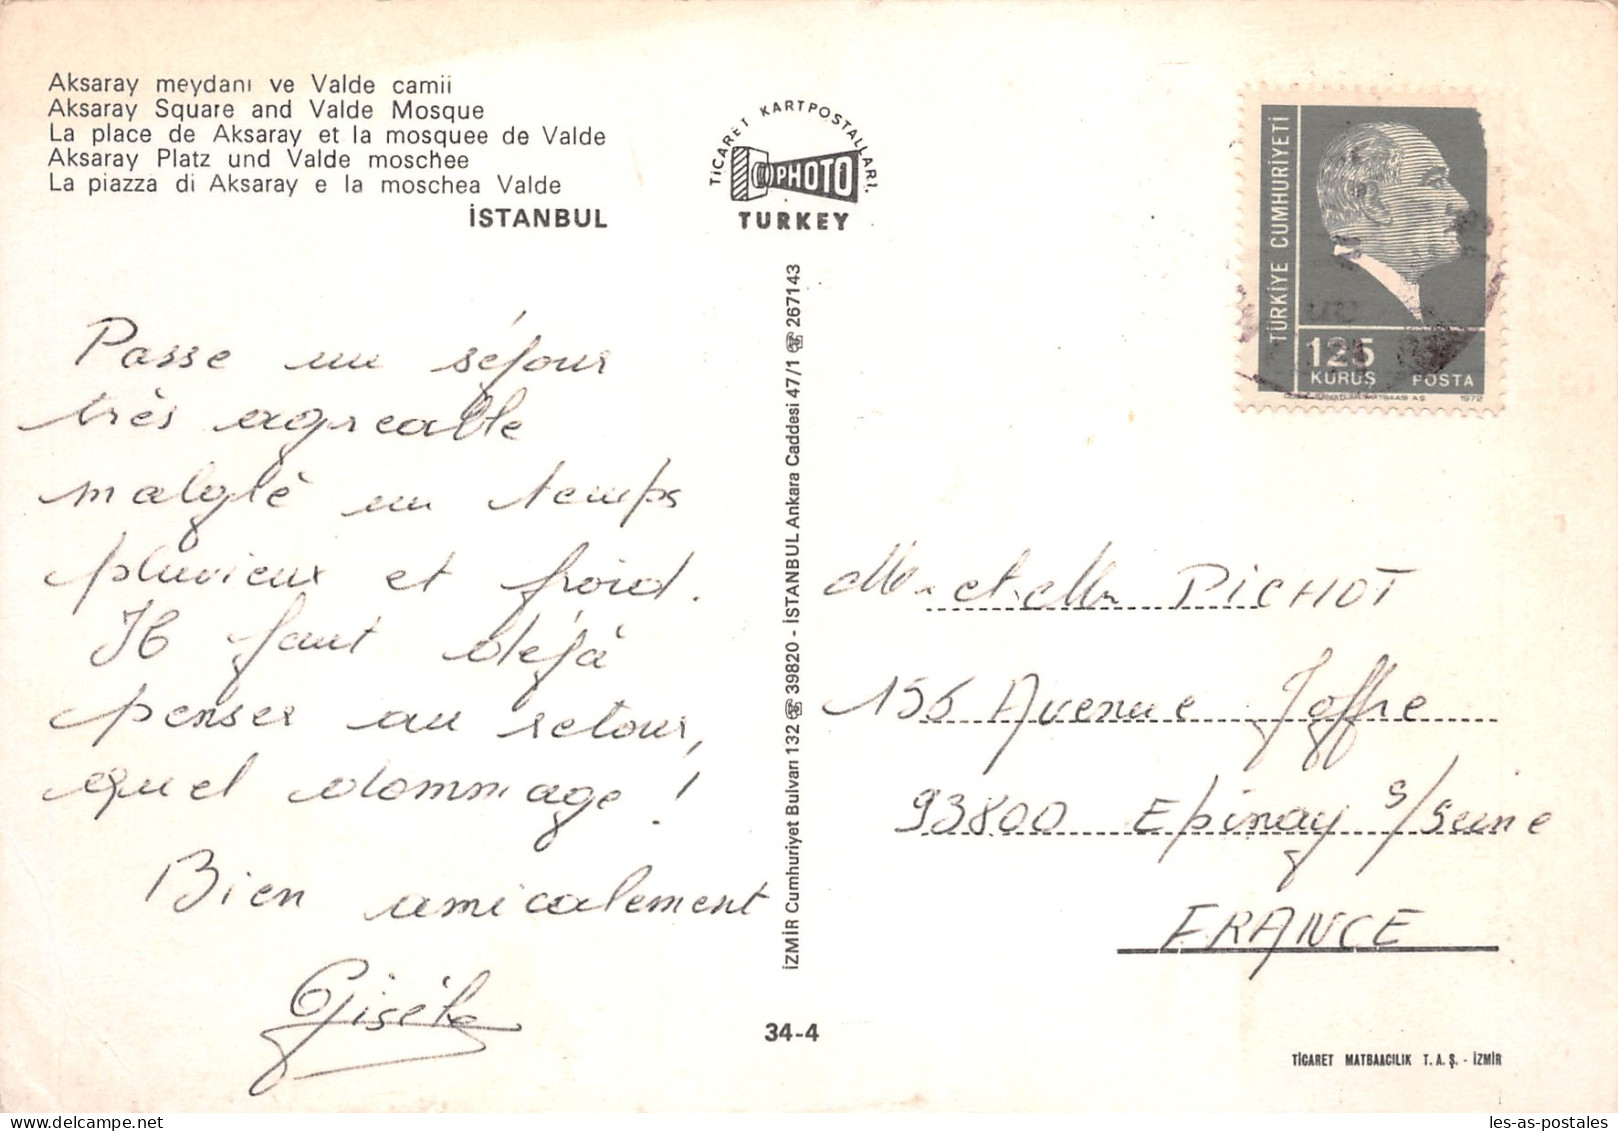 Aksaray meydanı ve Valde camii
Aksaray Square and Valde Mosque
La place de Aksaray et la mosquee de Valde
Aksaray Platz und Valde moschee
La piazza di Aksaray e la moschea Valde
İSTANBUL
TiCARET KARTPOSTALLARI.
PHOTO
TURKEY
TÜRKİYE CUMHURİYETİ
125
KURUŞ POSTA
1972
Passe un séjour
très agreable
malgré un temps
pluvieux et froid.
Il faut déjà
penser au retour,
quel dommage !
Bien amicalement
Gisèle
İZMİR Cumhuriyet Bulvarı 132 ☏ 39820 - İSTANBUL Ankara Caddesi 47/1 ☏ 267143
M. et Mm PICHOT
156 Avenue Joffre
93800 Epinay s/Seine
FRANCE
34-4
TİCARET MATBAACILIK T.A.Ş. - İZMİR
les-as-postales